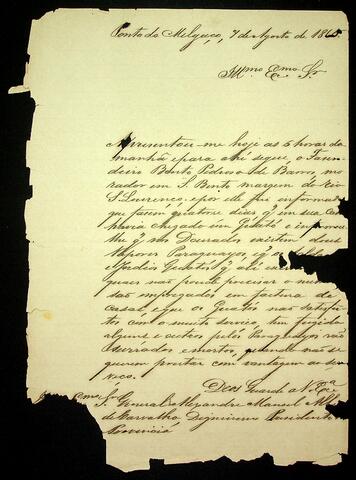 Ponta do Melgaço, 7 de Agosto de 1865.
Illmo Exmo Sr
Apresentou-me hoje as 6 horas da
manhã e para ahi segue, o Fasen-
deiro Bento Pedroso de Barros, mo-
rador em S. Bento margem do rio
S. Lourenço, e por elle fui informado
que fasem quatorse dias q' em sua
havia chegado um Guató e
lhe q' nos Dourados existem dous
Vapores Paraguayos, q' a
e Indios Guatós q' ali
quaes não poude precisar o
são impregados em factura de
casas, e que os Guatós não satisfei
tos com o muito serviço tem fugido
alguns e outros pelos Paraguayos são
surrados e mortos, quando não se
querem prestar com vantagem ao ser-
viço.
Deos Guarde a V. Exa
Exmo Sr General Alexandre Manoel
de Carvalho Dignissimo Presidente
Provincia